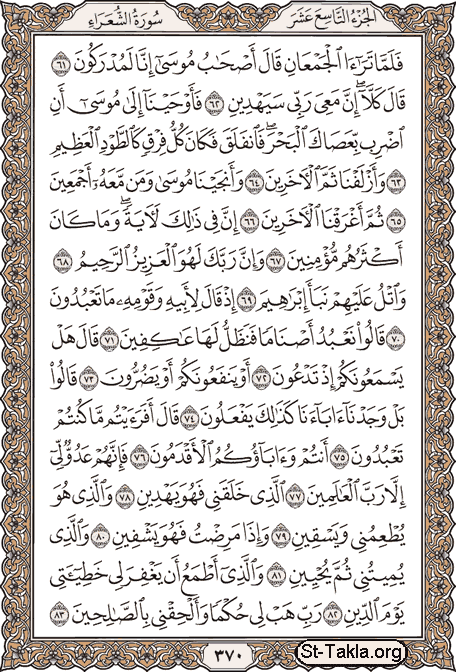 الجزء التاسع عشر
سورة الشعراء
فَلَمَّا تَرَٰٓءَا ٱلۡجَمۡعَانِ قَالَ أَصۡحَٰبُ مُوسَىٰٓ إِنَّا لَمُدۡرَكُونَ ٦١
قَالَ كَلَّآۖ إِنَّ مَعِيَ رَبِّي سَيَهۡدِينِ ٦٢ فَأَوۡحَيۡنَآ إِلَىٰ مُوسَىٰٓ أَنِ
ٱضۡرِب بِّعَصَاكَ ٱلۡبَحۡرَۖ فَٱنفَلَقَ فَكَانَ كُلُّ فِرۡقٖ كَٱلطَّوۡدِ ٱلۡعَظِيمِ
٦٣ وَأَزۡلَفۡنَا ثَمَّ ٱلۡأٓخَرِينَ ٦٤ وَأَنجَيۡنَا مُوسَىٰ وَمَن مَّعَهُۥٓ أَجۡمَعِينَ
٦٥ ثُمَّ أَغۡرَقۡنَا ٱلۡأٓخَرِينَ ٦٦ إِنَّ فِي ذَٰلِكَ لَأٓيَةٗۖ وَمَا كَانَ
أَكۡثَرُهُم مُّؤۡمِنِينَ ٦٧ وَإِنَّ رَبَّكَ لَهُوَ ٱلۡعَزِيزُ ٱلرَّحِيمُ ٦٨
وَٱتۡلُ عَلَيۡهِمۡ نَبَأَ إِبۡرَٰهِيمَ ٦٩ إِذۡ قَالَ لِأَبِيهِ وَقَوۡمِهِۦ مَا تَعۡبُدُونَ
٧٠ قَالُواْ نَعۡبُدُ أَصۡنَامٗا فَنَظَلُّ لَهَا عَٰكِفِينَ ٧١ قَالَ هَلۡ
يَسۡمَعُونَكُمۡ إِذۡ تَدۡعُونَ ٧٢ أَوۡ يَنفَعُونَكُمۡ أَوۡ يَضُرُّونَ ٧٣ قَالُواْ
بَلۡ وَجَدۡنَآ ءَابَآءَنَا كَذَٰلِكَ يَفۡعَلُونَ ٧٤ قَالَ أَفَرَءَيۡتُم مَّا كُنتُمۡ
تَعۡبُدُونَ ٧٥ أَنتُمۡ وَءَابَآؤُكُمُ ٱلۡأَقۡدَمُونَ ٧٦ فَإِنَّهُمۡ عَدُوّٞ لِّيٓ
إِلَّا رَبَّ ٱلۡعَٰلَمِينَ ٧٧ ٱلَّذِي خَلَقَنِي فَهُوَ يَهۡدِينِ ٧٨ وَٱلَّذِي هُوَ
يُطۡعِمُنِي وَيَسۡقِينِ ٧٩ وَإِذَا مَرِضۡتُ فَهُوَ يَشۡفِينِ ٨٠ وَٱلَّذِي
يُمِيتُنِي ثُمَّ يُحۡيِينِ ٨١ وَٱلَّذِيٓ أَطۡمَعُ أَن يَغۡفِرَ لِي خَطِيٓـَٔتِي
يَوۡمَ ٱلدِّينِ ٨٢ رَبِّ هَبۡ لِي حُكۡمٗا وَأَلۡحِقۡنِي بِٱلصَّٰلِحِينَ ٨٣
٣٧٠
St-Takla.org